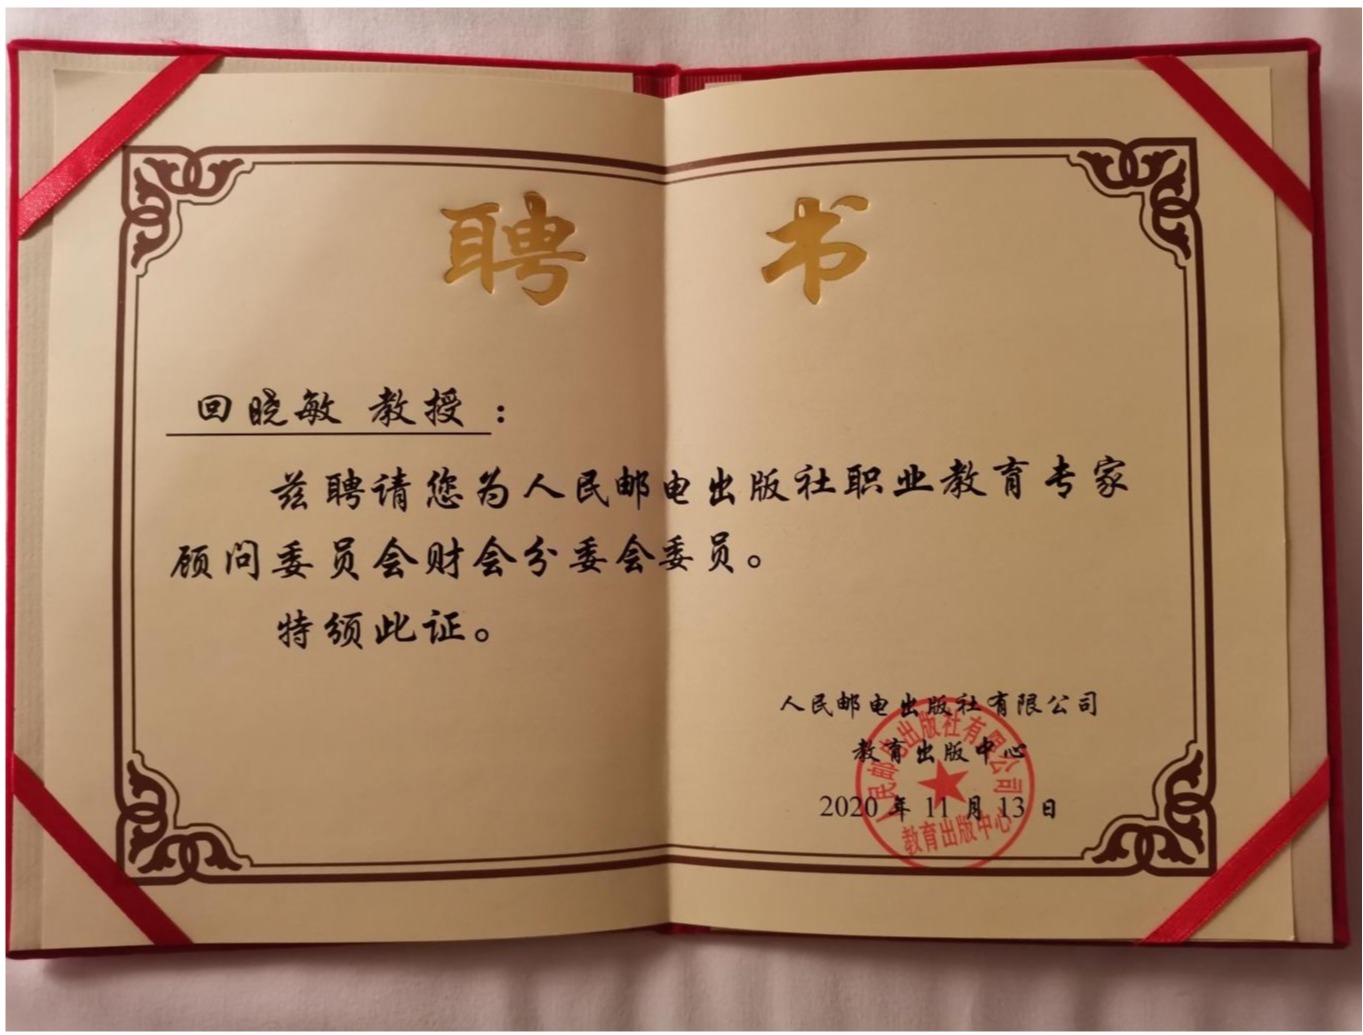 聘书
回晓敏 教授：
兹聘请您为人民邮电出版社职业教育专家
顾问委员会财会分委会委员。
特颁此证。
人民邮电出版社有限公司
教育出版中心
2020 年 11 月 13 日
人民邮电出版社有限公司
教育出版中心